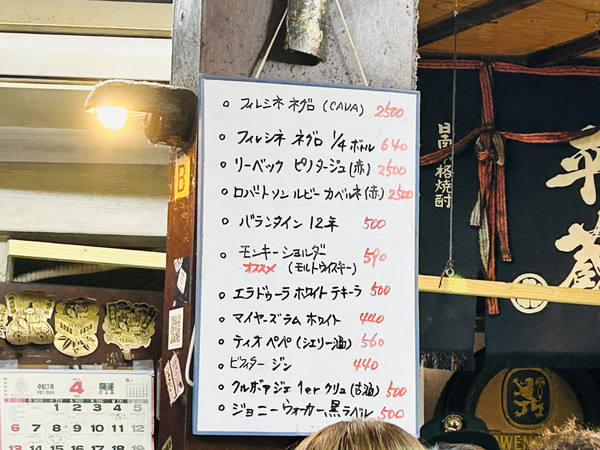 フィルシネ ネグロ (CAVA) 2500
フィルシネ ネグロ 1/4 ボトル 640
リーベック ピノタージュ(赤) 2500
ロバートソン ルビー カベルネ(赤) 2500
バランタイン 12年 500
モンキー ショルダー 590
オススメ (モルトウイスキー)
エラドゥーラ ホワイト テキーラ 500
マイヤーズ ラム ホワイト 440
ティオ ペペ (シェリー酒) 560
ビフィター ジン 440
クルボアジェ 1er クリュ (古酒) 500
ジョニー ウォーカー 黒ラベル 500
B
4
1 2 3 4 5
6 7 8 9 10 11 12
13 14 15 16 17 18 19
平蔵